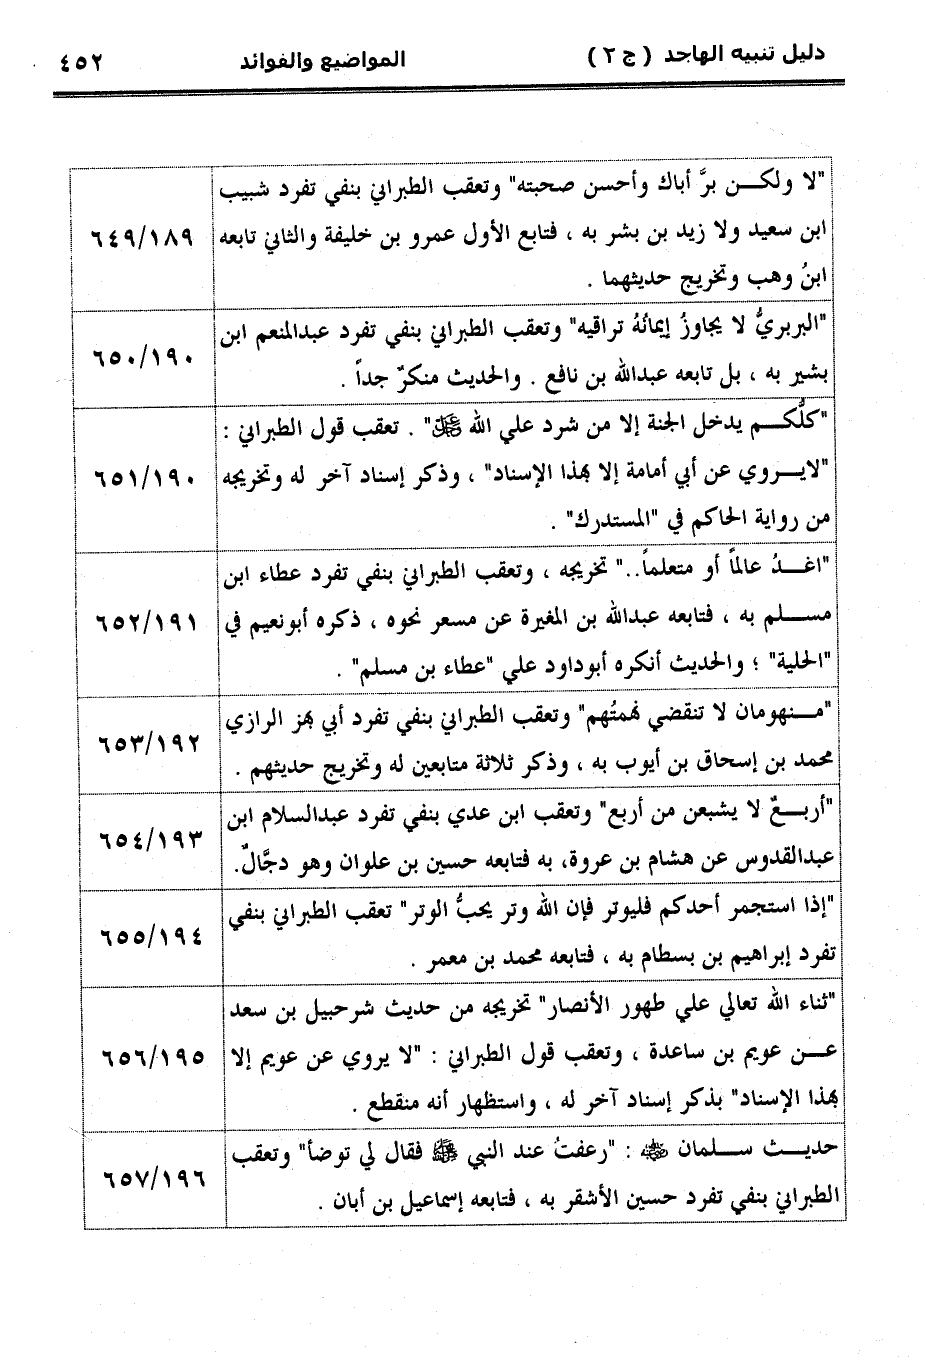 دليل تنبيه الهاجد ( ج ٢ ) المواضيع والفوائد ٤٥٢
"لا ولكـــن برَّ أباك وأحسن صحبته" وتعقب الطبراني بنفي تفرد شبيب
ابن سعيد ولا زيد بن بشر به ، فتابع الأول عمرو بن خليفة والثاني تابعه
ابنُ وهب وتخريج حديثهما .
٦٤٩/١٨٩
"البربريُّ لا يجاوزُ إيمانُهُ تراقيه" وتعقب الطبراني بنفي تفرد عبدالمنعم ابن
بشير به ، بل تابعه عبدالله بن نافع . والحديث منكرٌ جداً .
٦٥٠/١٩٠
"كلُّكـــم يدخل الجنة إلا من شرد علي الله ﷻ" . تعقب قول الطبراني :
"لايـــروي عن أبي أمامة إلا بهذا الإسناد" ، وذكر إسناد آخر له وتخريجه
من رواية الحاكم في "المستدرك" .
٦٥١/١٩٠
"اغـــدُ عالماً أو متعلماً.." تخريجه ، وتعقب الطبراني بنفي تفرد عطاء ابن
مســـلم به ، فتابعه عبدالله بن المغيرة عن مسعر نحوه ، ذكره أبونعيم في
"الحلية" ؛ والحديث أنكره أبوداود علي "عطاء بن مسلم" .
٦٥٢/١٩١
"مـــنهومان لا تنقضي نهمتُهم" وتعقب الطبراني بنفي تفرد أبي بهز الرازي
محمد بن إسحاق بن أيوب به ، وذكر ثلاثة متابعين له وتخريج حديثهم .
٦٥٣/١٩٢
"أربـــعٌ لا يشبعن من أربع" وتعقب ابن عدي بنفي تفرد عبدالسلام ابن
عبدالقدوس عن هشام بن عروة، به فتابعه حسين بن علوان وهو دجَّالٌ.
٦٥٤/١٩٣
"إذا استجمر أحدكم فليوتر فإن الله وتر يحبُّ الوتر" تعقب الطبراني بنفي
تفرد إبراهيم بن بسطام به ، فتابعه محمد بن معمر .
٦٥٥/١٩٤
"ثناء الله تعالي علي طهور الأنصار" تخريجه من حديث شرحبيل بن سعد
عـــن عويم بن ساعدة ، وتعقب قول الطبراني : "لا يروي عن عويم إلا
بهذا الإسناد" بذكر إسناد آخر له ، واستظهار أنه منقطع .
٦٥٦/١٩٥
حديـــث ســـلمان ﷺ : "رعفتُ عند النبي ﷺ فقال لي توضأ" وتعقب
الطبراني بنفي تفرد حسين الأشقر به ، فتابعه إسماعيل بن أبان .
٦٥٧/١٩٦